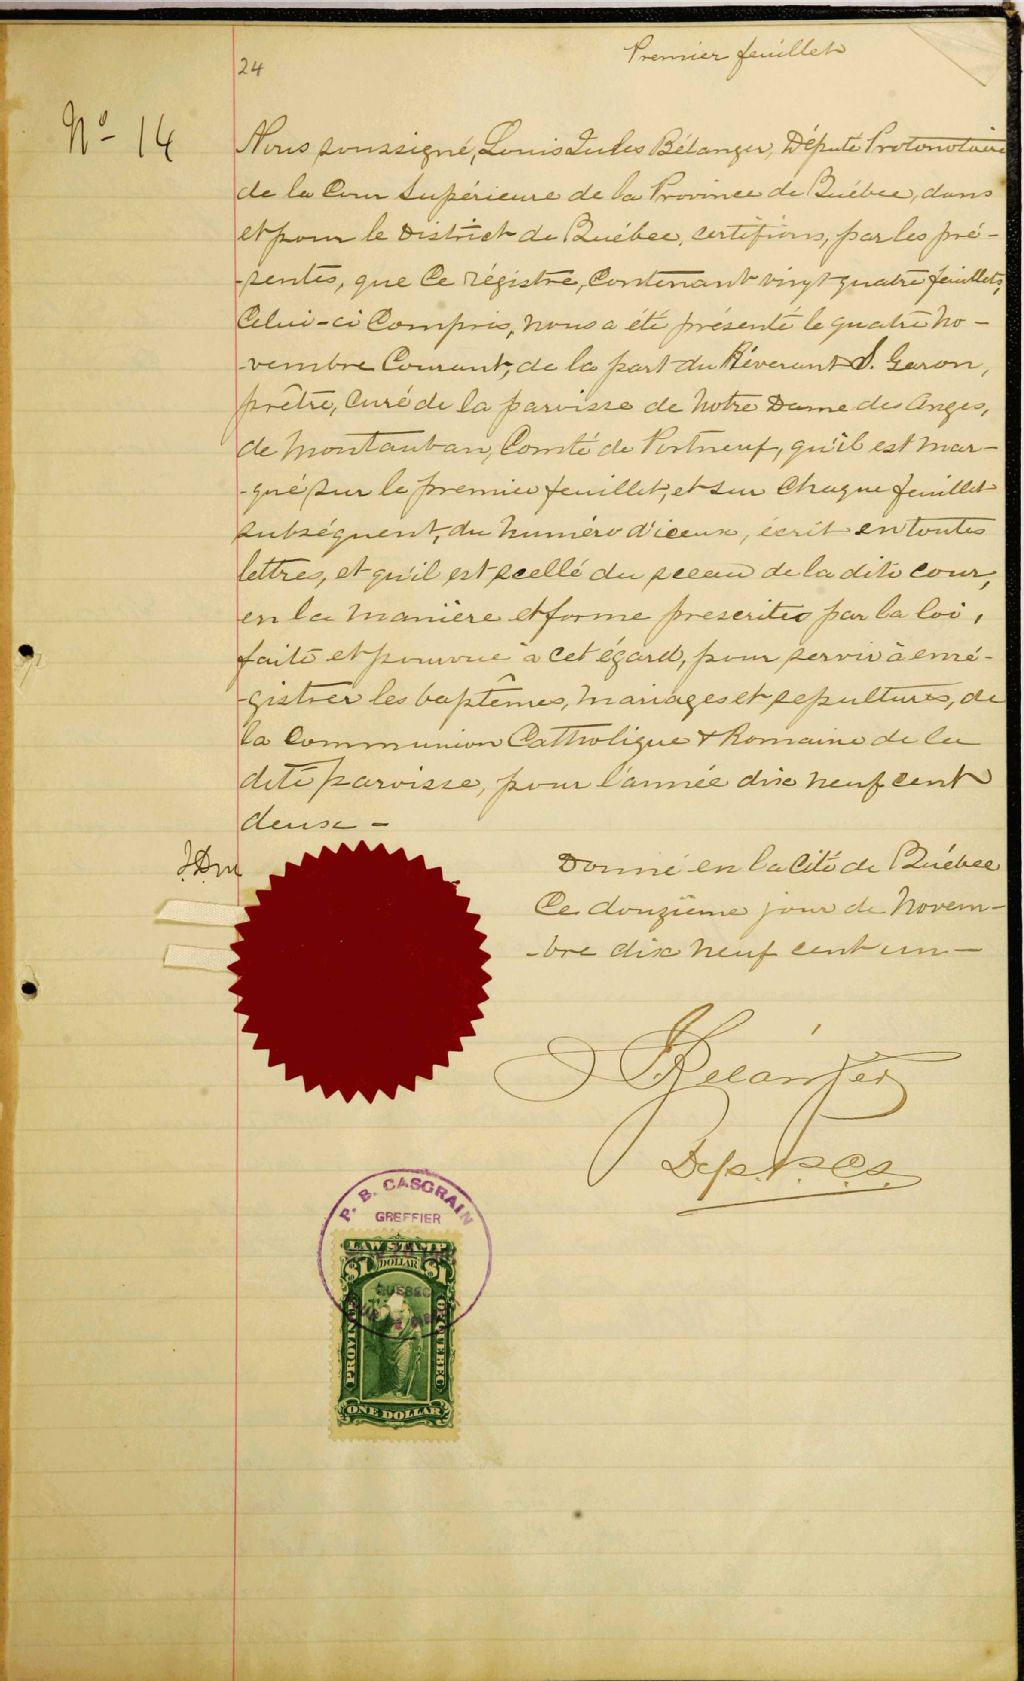 24
Premier feuillet
No 14
Nous soussigné, Louis Jules Bélanger, Député Protonotaire
de la Cour Supérieure de la Province de Québec, dans
et pour le District de Québec, certifions, par les pré-
-sentes, que ce régistre, contenant vingt quatre feuillets,
celui-ci compris, nous a été présenté le quatre no-
-vembre courant, de la part du Révérant S. Garon,
prêtre, curé de la paroisse de Notre Dame des Anges,
de Montauban, Comté de Portneuf, qu'il est mar-
-qué sur le premier feuillet, et sur chaque feuillet
subséquent, du numéro d'iceux, écrit en toutes
lettres, et qu'il est scellé du sceau de la dite cour,
en la manière et forme prescrites par la loi,
faite et pourvue à cet égard, pour servir à enré-
-gistrer les baptêmes, mariages et sepultures, de
la Communion Catholique & Romaine de la
dite paroisse, pour l'année dix neuf cent
deux -
Donné en la Cité de Québec
Ce douzième jour de Novem-
-bre dix neuf cent un -
Bélanger
Dep. P.C.S.
P. B. CASGRAIN
GREFFIER
LAW STAMP
$1 DOLLAR $1
QUEBEC
PROVINCE
OF QUEBEC
ONE DOLLAR